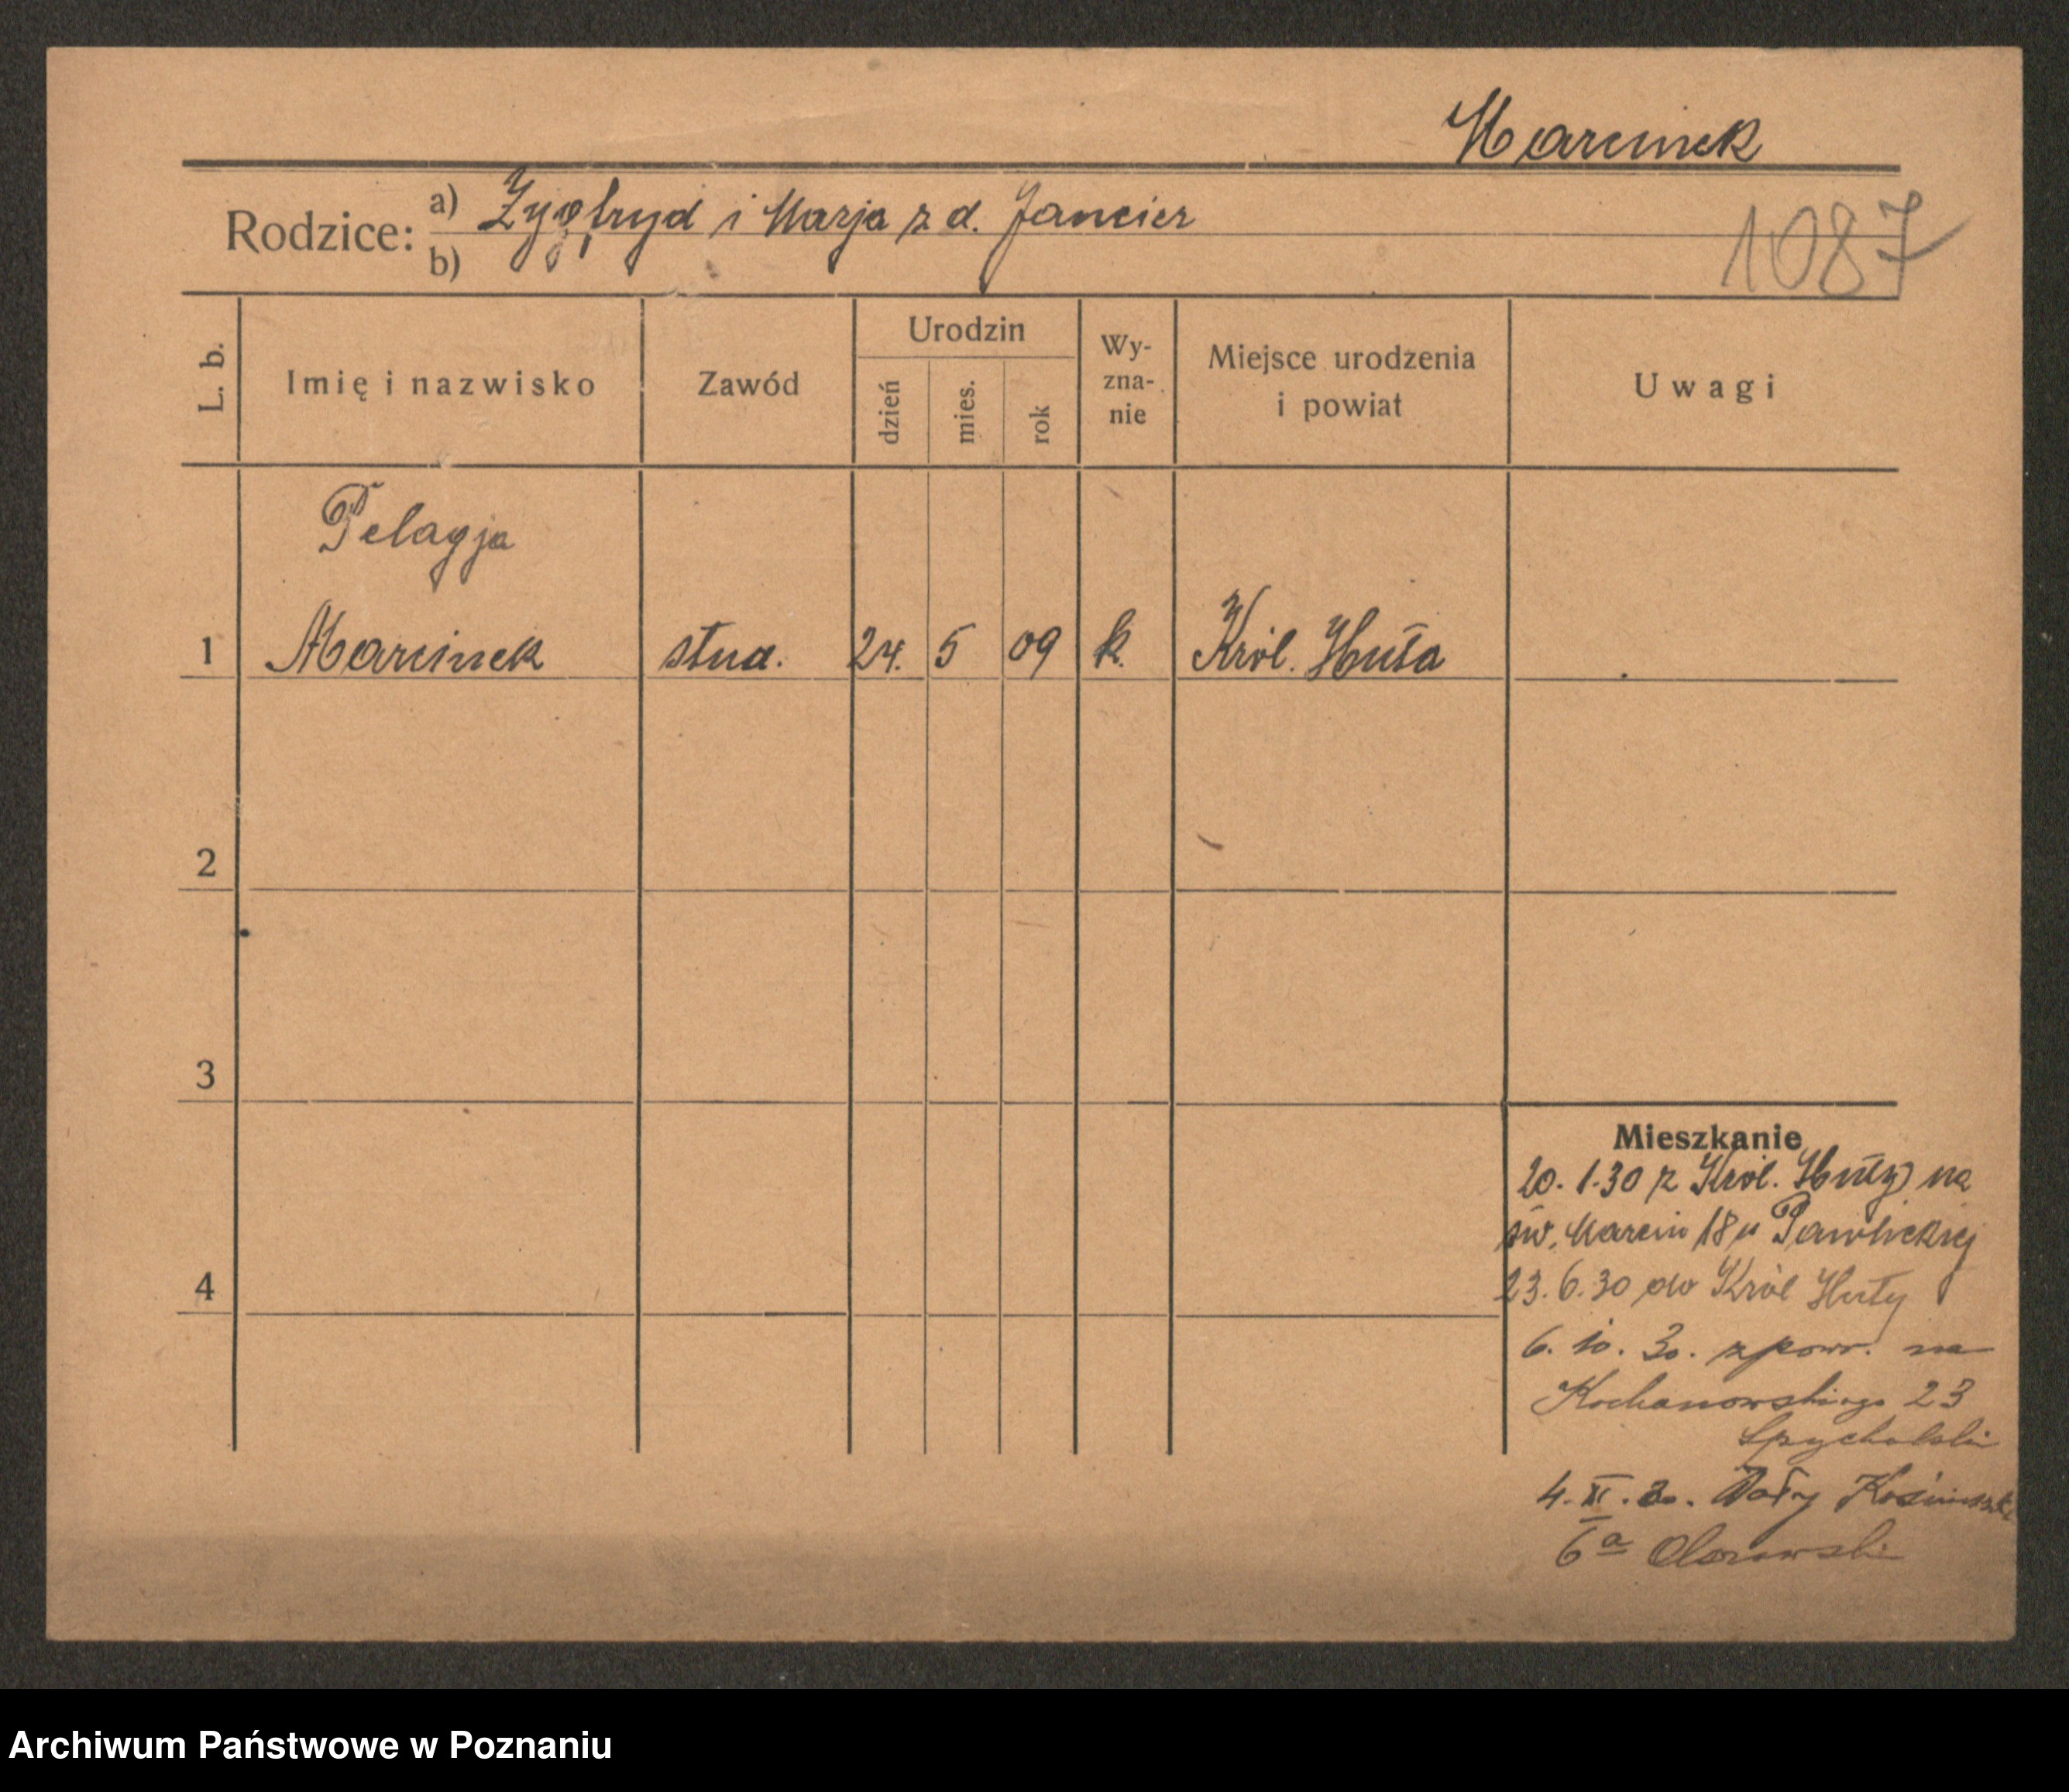 Marcinek
Rodzice: a) Zygfryd i Marja z d. Jancier
b)
1087
L. b.
Imię i nazwisko
Zawód
Urodzin
dzień
mies.
rok
Wy-
zna-
nie
Miejsce urodzenia
i powiat
Uwagi
Pelagja
1 Marcinek stud. 24. 5 09 k. Król. Huta
2
3
Mieszkanie
20. 1. 30 z Król. Huty na
św. Marcin 18 u Pawlickiej
4
23. 6. 30 do Król Huty
6. 10. 30. zpowr. na
Kochanowskiego 23
Spychalski
4. XI. 30. Wały
6a
Archiwum Państwowe w Poznaniu